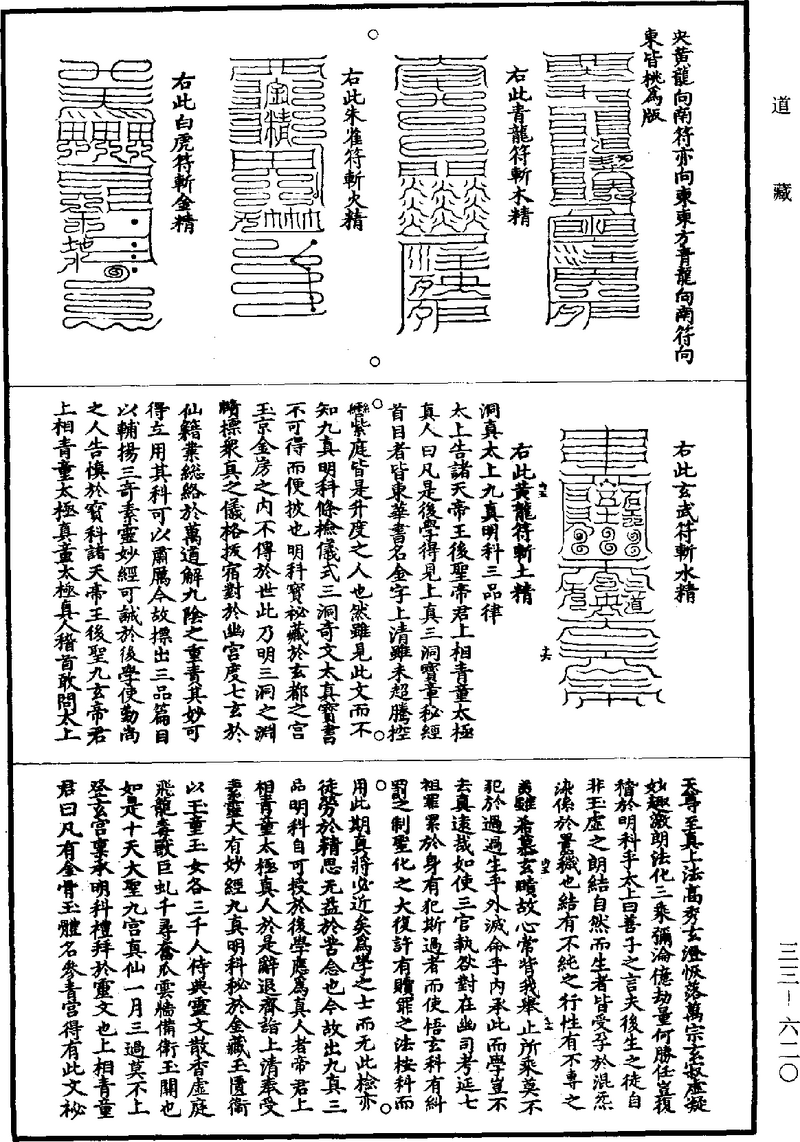 道藏
三三—六二〇
央黃龍向南符亦向東東方青龍向南符向
東皆桃為版
右此青龍符斬木精
右此朱雀符斬火精
金精
右此白虎符斬金精
地水
右此玄武符斬水精
右此黃龍符斬土精
洞真太上九真明科三品律
太上告諸天帝王後聖帝君上相青童太極
真人曰凡是後學得見上真三洞寶章秘經
首目者皆東華書名金字上清雖未超騰控
轡紫庭皆是升度之人也然雖見此文而不
知九真明科條檢儀式三洞奇文太真寶書
不可得而便披也明科寶秘藏於玄都之宮
玉京金房之內不傳於世此乃明三洞之淵
賾標眾真之儀格拔宿對於幽宮度七玄於
仙籍業總絡於萬道解九陰之重責其妙可
得立用其科可以肅厲今故標出三品篇目
以輔揚三奇素靈妙經可誡於後學使勤尚
之人告慎於寶科諸天帝王後聖九玄帝君
上相青童太極真童太極真人稽首敢問太上
天尊至真上法高秀玄澄恢落萬宗玄寂虛凝
妙趣激朗法化三乘彌淪億劫量何勝任豈復
稽於明科乎太上曰善子之言夫後生之徒自
非玉虛之朗結自然而生者皆受孕於混炁
染係於罿織也結有不純之行性有不專之
茍雖希慕玄賾故心常背我舉止所乘莫不
犯於過過生乎外滅命乎內承此而學豈不
去真遠哉如使三官執咎對在幽司考延七
祖罪累於身有犯斯過者而使悟玄科有糾
罰之制聖化之大復許有贖罪之法按科而
用此期真將必近矣為學之士而无此檢亦
徒勞於精思无益於苦念也今故出九真三
品明科自可授於後學應為真人者帝君上
相青童太極真人於是辭退齊詣上清奉受
素靈大有妙經九真明科秘於金藏玉匱衛
以玉童玉女各三千人侍典靈文散香虛庭
飛龍毒獸巨虬千尋奮爪雲牆備衛玉闕也
如是十天大聖九宮真仙一月三過莫不上
登玄宮稟承明科禮拜於靈文也上相青童
君曰凡有金骨玉體名參青宮得有此文祕